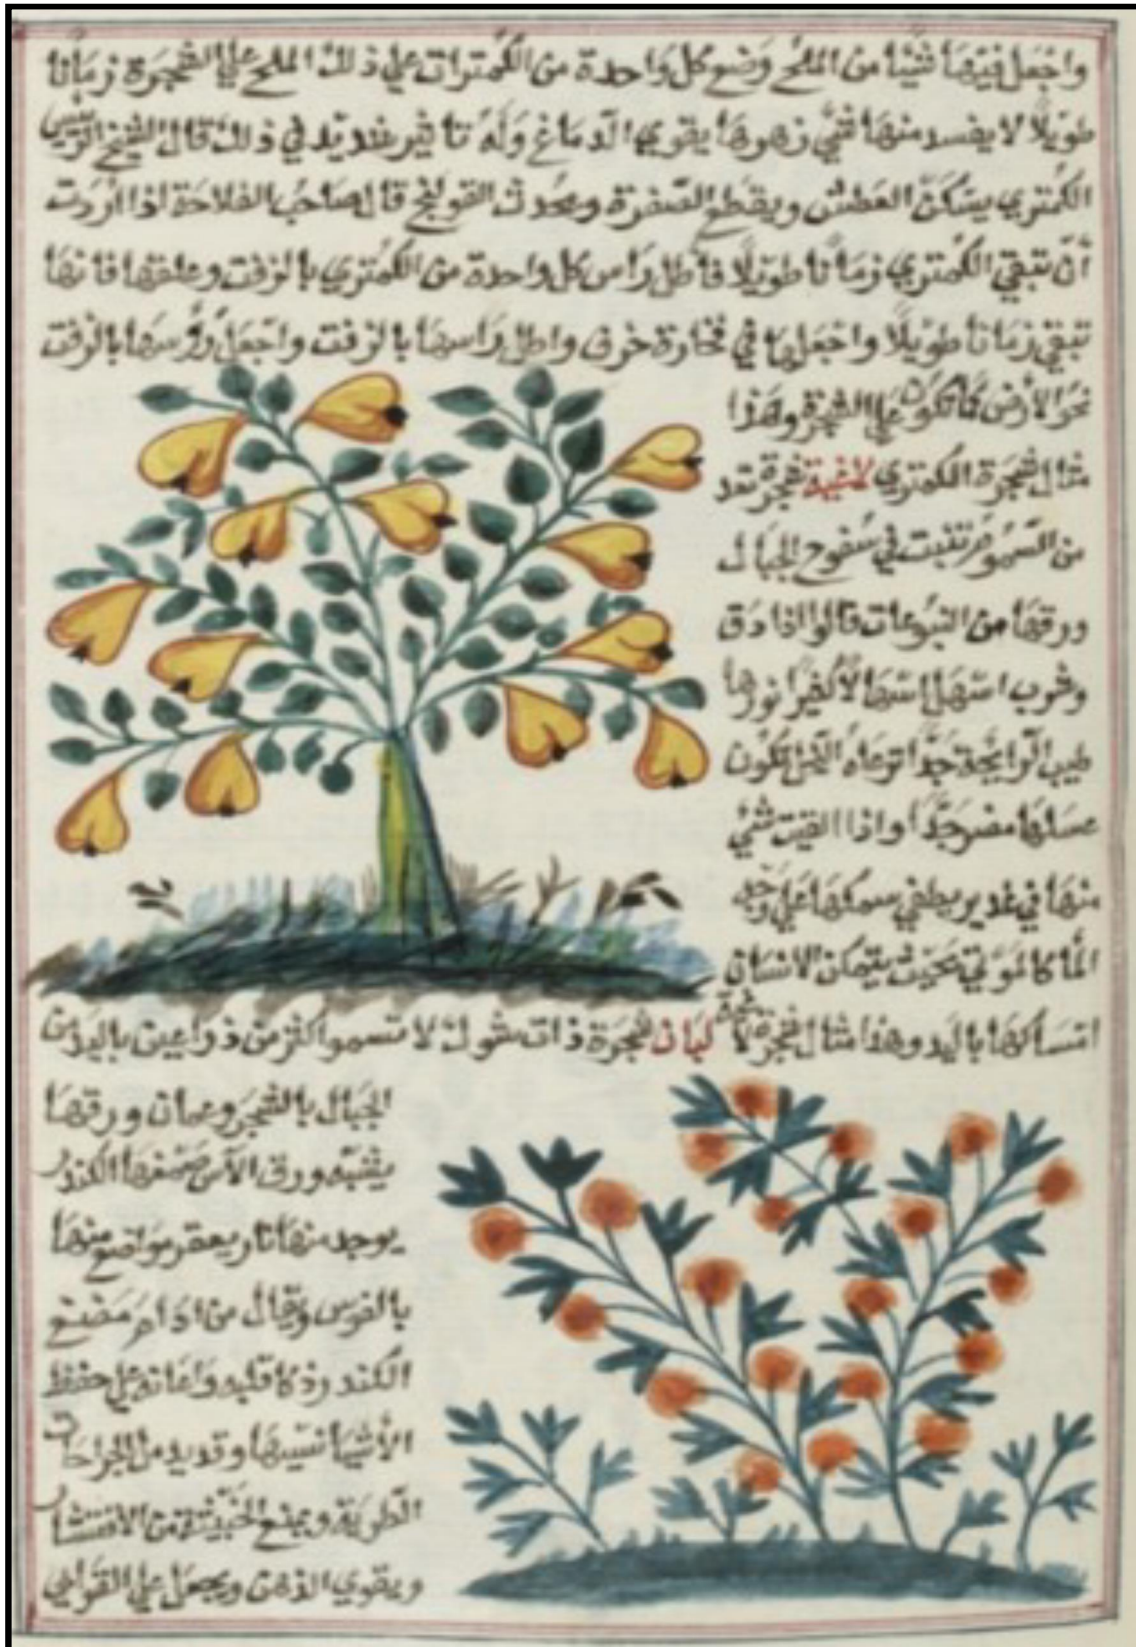 واجعل فيها شيئا من الملح وضع كل واحدة من الكمترات على ذلك الملح على الشجرة زمانا
طويلا لا يفسد منها شي زهرها يقوي الدماغ وله تاثير شديد في ذلك قال الشيخ الرئيس
الكمتري يسكن العطش ويقطع الصفرة ويحدث القولنج قال صاحب الفلاحة اذا اردت
أن تبقي الكمتري زمانا طويلا فأطل رأس كل واحدة من الكمتري بالزفت وعلقها فانها
تبقي زمانا طويلا واجعلها في فخارة خزف واطل رأسها بالزفت واجعل رؤسها بالزفت
نحو الأرض كما تكون على الشجرة وهذا
مثال شجرة الكمتري لاغية شجرة تعد
من السموم تنبت في سفوح الجبال
ورقها من اليتوعات قالوا اذا دق
وشرب اسهل اسهالا كثيرا نورها
طيب الرايحة جدا ترعاه النحل تكون
عسلها مضر جدا واذا القيت شئ
منها في غدير يطفي سمكها على وجه
الما كالموتي بحيث يتمكن الانسان
امساكها باليد وهذا مثال شجرة لاغية لبان شجرة ذات شوك لا تسموا اكثر من ذراعين باليمن
الجبال بالشجر وعمان ورقها
يشبه ورق الآس صمغها الكندر
يوجد منها تار يعقر مواضع منها
بالفوس ويقال من ادام مضغ
الكندر ذكا قلبه واعانه على حفظ
الأشيا نسيها وقد يدمل الجراحات
الطرية ويمنع الخبيثة من الانتشار
ويقوي الذهن ويجعل على القوابي